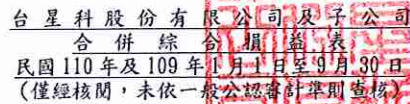 台星科股份有限公司及子公司
合併綜合損益表
民國110年及109年1月1日至9月30日
(僅經核閱，未依一般公認審計準則查核)